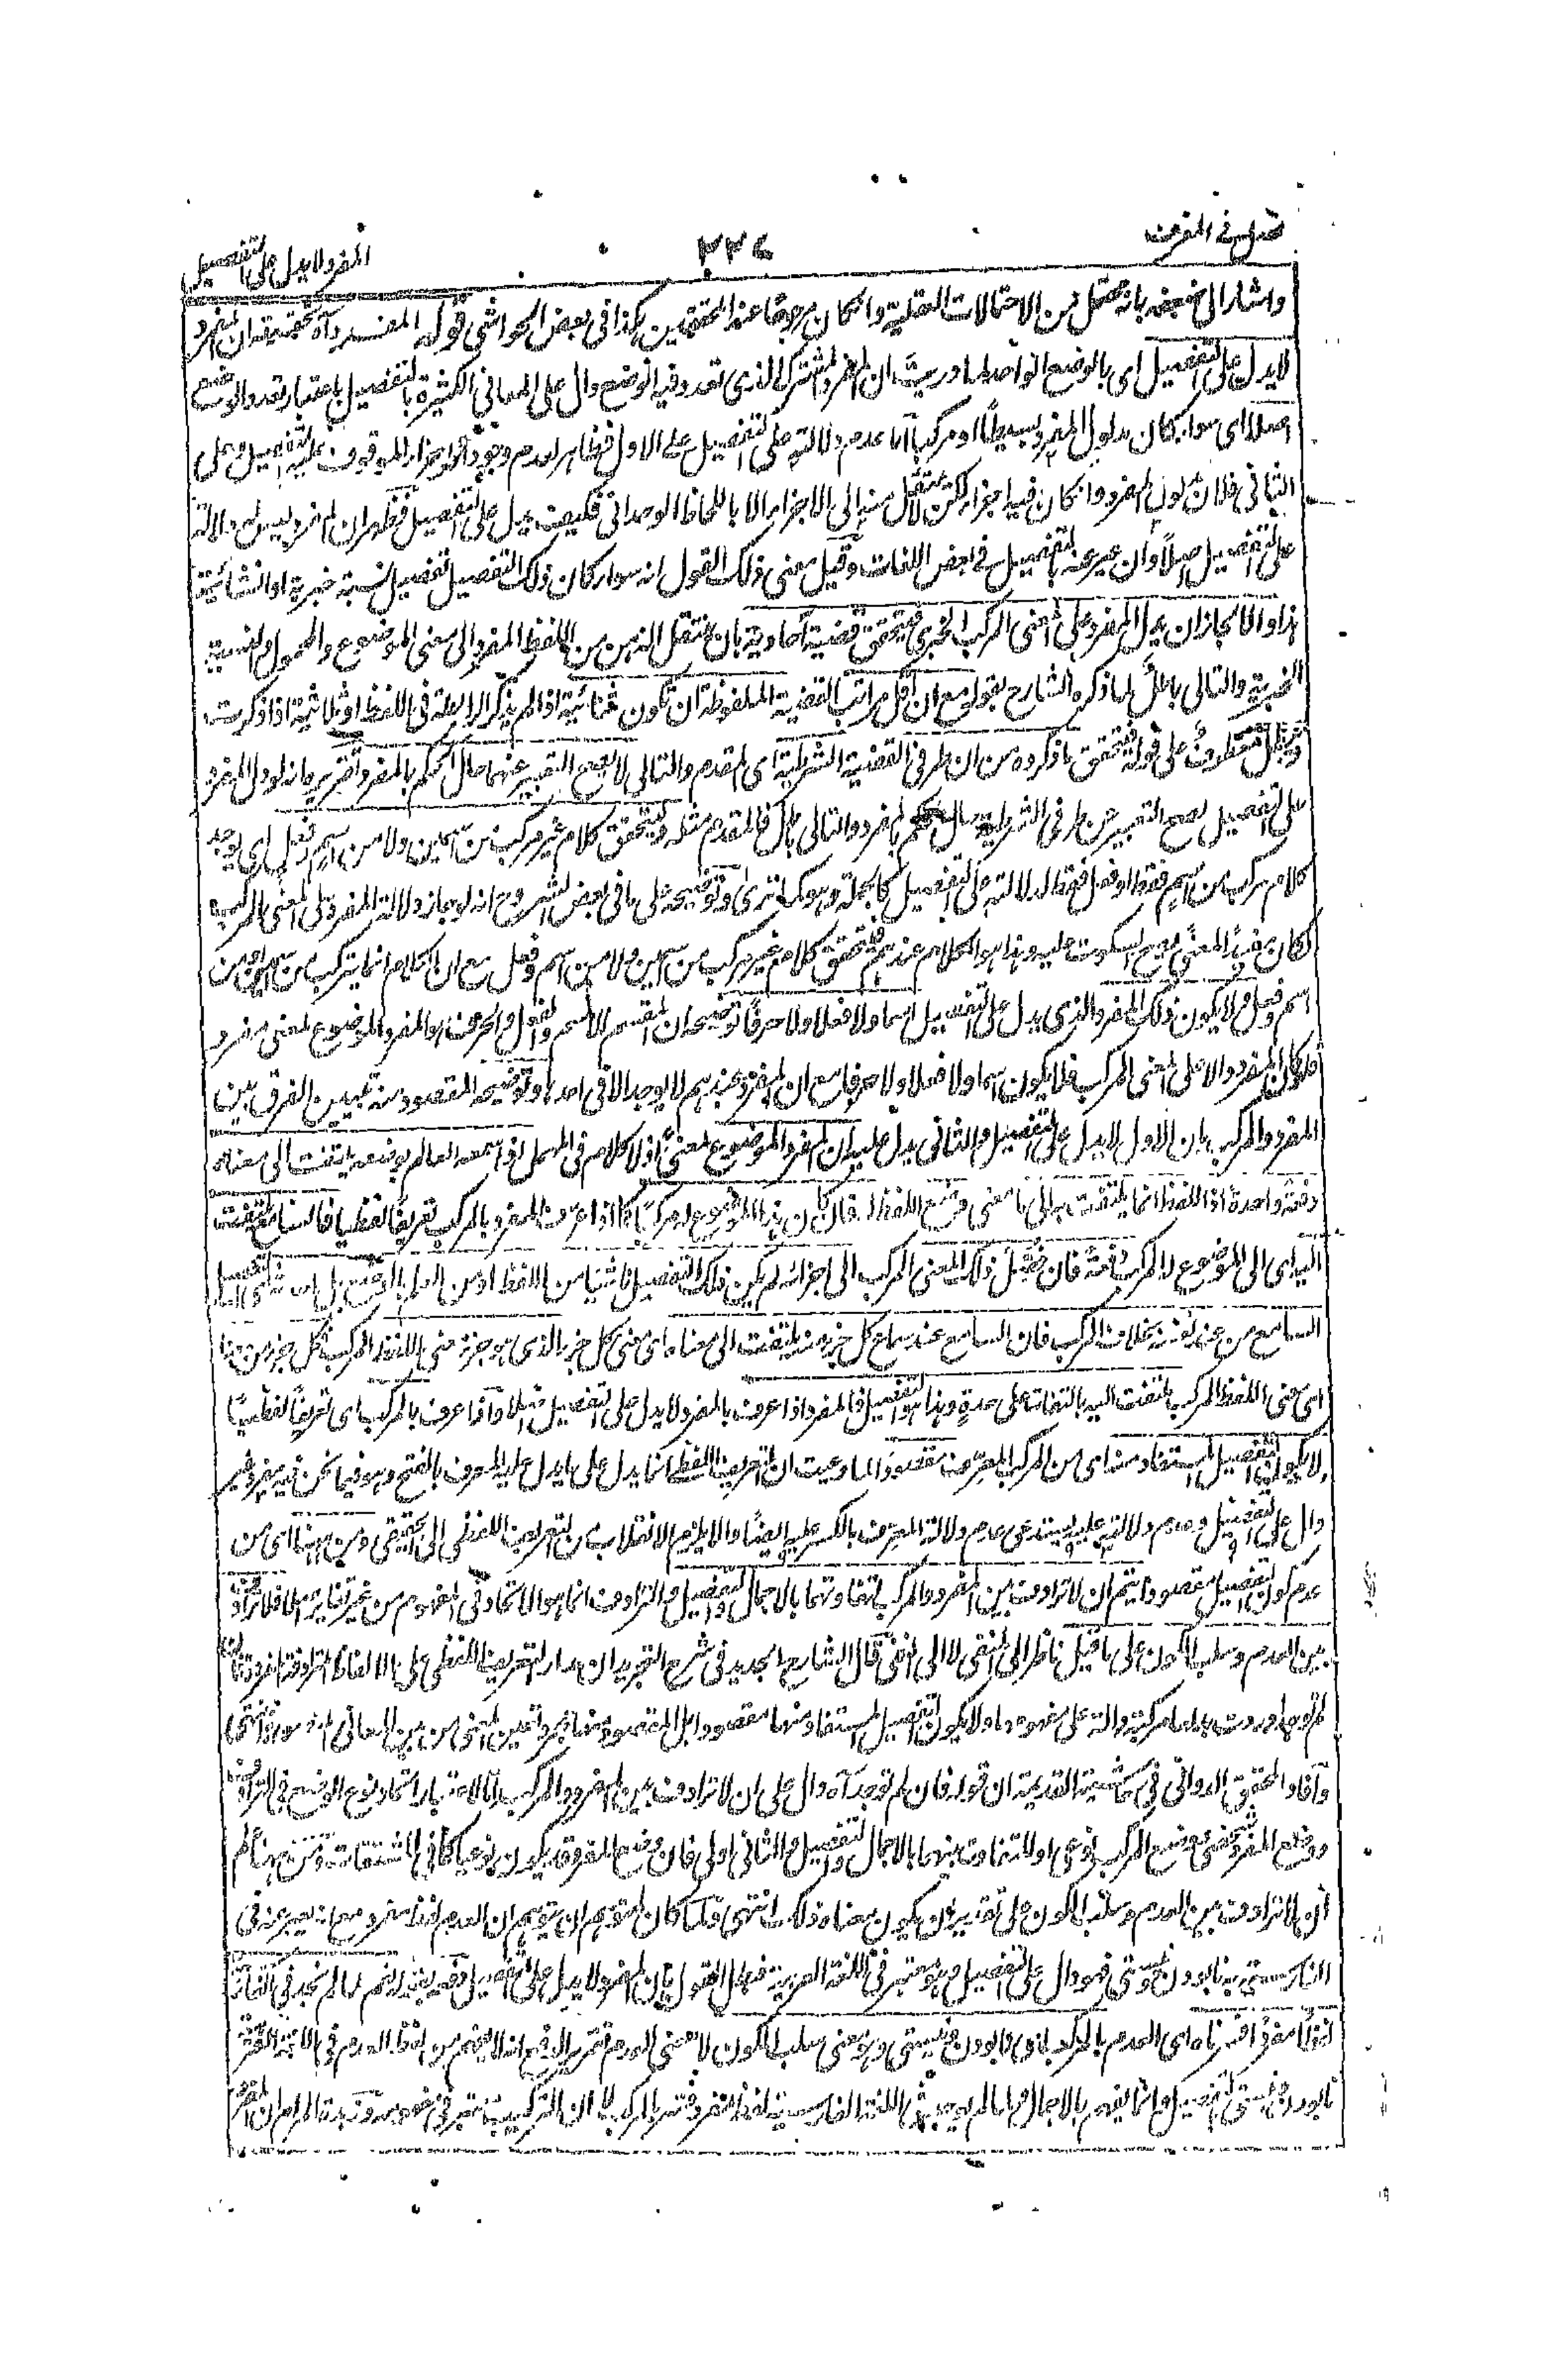 المفرد لا يدل على التفصيل
واشار الى ضعفه بانه محتمل من الاحتمالات العقلية وان كان مرجوحًا عند المحققين هكذا فى بعض الحواشى قوله المفرد آه تحقيقه ان المفرد
لا يدل على التفصيل اى بالوضع الواحد لما دريت ان المفرد المشترك الذى تعدد فيه الوضع دال على المعانى الكثيرة بالتفصيل باعتبار تعدد الوضع
اصلا اى سواء كان مدلول المفرد بسيطًا او مركبا اما عدم دلالته على التفصيل على الاول فظاهر لعدم وجود الاجزاء الموقوف عليه التفصيل وعلى
الثانى فلان مدلول المفرد وان كان فيه اجزاء لكن لا ينتقل منه الى الاجزاء الا باللحاظ الوحدانى فكيف يدل على التفصيل فظهر ان المفرد ليس له دلالة
على التفصيل اصلًا وان عبر عنه بالتفصيل فى بعض اللغات وقيل معنى ذلك القول انه سواء كان ذلك التفصيل تفصيل نسبة خبرية او انشائية
هذا والا لجاز ان يدل المفرد على المعنى المركب الخبرى فيتحقق قضية احادية بان ينتقل الذهن من اللفظ المفرد الى معنى الموضوع والمحمول والنسبة
الخبرية والتالى باطل لما ذكره الشارح بقوله مع ان اقل مراتب القضية الملفوظة ان تكون ثنائية اذا لم يذكر الرابطة فى اللفظ او ثلاثية اذا ذكرت
معطوف على قوله فيتحقق ما ذكروه من ان طرفى القضية الشرطية اى المقدم والتالى لا يصح التعبير عنهما حال الحكم بالمفرد تقريره انه لو دل المفرد
على التفصيل لصح التعبير عن طرفى الشرطية حال الحكم بالمفرد والتالى باطل فالمقدم مثله ويتحقق كلام غير مركب من اسمين ولا من اسم وفعل اى يوجد
كلام مركب من اسم فقط او فعل فقط لدلالته على التفصيل كالجملة وهو كما ترى وتوضيحه على ما فى بعض الشروح انه لو جاز دلالة المفرد على المعنى المركب
لكان مفيدًا لمعنى يصح السكوت عليه وهذا هو الكلام عندهم فيتحقق كلام غير مركب من اسمين ولا من اسم وفعل مع ان الكلام انما يتركب من اسمين او من
اسم وفعل ولا يكون ذلك المفرد الذى يدل على التفصيل اسما ولا فعلا ولا حرفًا توضيحه ان المقسم للاسم والفعل والحرف هو المفرد الموضوع لمعنى مفرد
فلو كان المفرد دالا على المعنى المركب فلا يكون اسما ولا فعلا ولا حرفا مع ان المفرد عندهم لا يوجد الا فى احدها وتوضيحه المقصود منه تبيين الفرق بين
المفرد والمركب بان الاول لا يدل على التفصيل والثانى يدل عليه ان المفرد الموضوع لمعنى اذ لا كلام فى المهمل اذا سمعه العالم بوضعه يلتفت الى معناه
دفعة واحدة اذ اللفظ انما يلتفت به الى ما معنى وضع اللفظ له فان كان هذا الموضوع له مركبًا كما اذا عرف المفرد بالمركب تعريفًا لفظيا فالسامع يلتفت
اليه اى الى الموضوع له المركب دفعة فان فصل ذلك المعنى المركب الى اجزائه لم يكن ذلك التفصيل ناشيًا من اللفظ او من العلم بالوضع بل
السامع من عند نفسه بخلاف المركب فان السامع عند سماع كل جزء منه يلتفت الى معناه اى معنى كل جزء الذى هو جزء معنى اللفظ المركب فكل جزء من
اى معنى اللفظ المركب يلتفت اليه بالتفات على حدة وهذا هو التفصيل فالمفرد اذا عرف بالمفرد لا يدل على التفصيل اصلا واذا عرف بالمركب اى تعريفًا لفظيًا
لا يكون التفصيل المستفاد منه اى من المركب المعرف مقصودًا لما وعيت ان التعريف اللفظى انما يدل على ما يدل عليه المعرف بالفتح وهو فيما نحن فيه مفرد غير
دال على التفصيل وعدم دلالته عليه يستدعى عدم دلالة المعرف بالكسر عليه ايضًا والا يلزم الانقلاب من التعريف اللفظى الى الحقيقى ومن ههنا اى من
عدم كون التفصيل مقصودا يتم ان لا ترادف بين المفرد والمركب لتفاوتهما بالاجمال والتفصيل والترادف انما هو الاتحاد فى المفهوم من غير تفاير اصلا فلا ترادف
بين العدم وسلب الكون على ما قيل ناظر الى المنفى لا الى النفى قال الشارح الجديد فى شرح التجريد ان مدار التعريف اللفظى على الالفاظ المترادفة المفردة
لم توجد اوردت بدلها مركبة دالة على مفهومها ولا يكون التفصيل المستفاد منها مقصودا بل المقصود منها مجرد تعيين المعنى من بين المعانى انتهى
وافاد المحقق الدوانى فى حاشيته القديمة ان قوله فان لم توجد آه دال على ان لا ترادف بين المفرد والمركب اما لاعتبار اتحاد نوع الوضع فى الترادف
ووضع المفرد شخصى ووضع المركب نوعى او لا تفاوت بينهما بالاجمال والتفصيل والثانى اولى فان وضع المفرد قد يكون نوعيا كما فى المشتقات ومن ههنا علم
ان لا ترادف بين العدم وسلب الكون على تقدير ان يكون معناه ذلك انتهى ولما كان لمتوهم ان يتوهم ان العدم لفظ مفرد مع انه يعبر عنه فى
الفارسية بنابودن ونيستى فهو دال على التفصيل وهو معتبر فى اللغة العربية فبطل القول بان المفرد لا يدل على التفصيل دفعه بقوله نعم لما لم نجد فى لغاتنا
لفظًا مفردًا فسرناه اى العدم بالمركب اى نابودن ونيستى وهو معنى سلب الكون لا معنى العدم تقرير الدفع انه لا يفهم من لفظ العدم فى اللغة العربية
نابودن ونيستى بالتفصيل وانما يفهم بالاجمال ولما لم يوجد فى اللغة الفارسية لفظ مفرد فسر بالمركب لا ان التركيب معتبر فى مفهومه وزبدة المرام ان المفرد